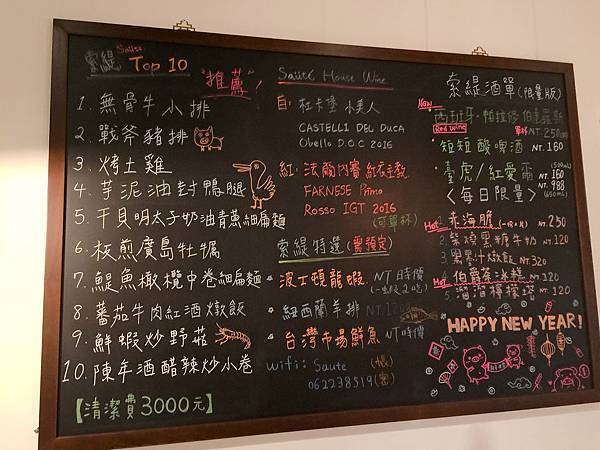 索緹 Saute Top 10 "推薦"!
1. 無骨牛小排
2. 戰斧豬排
3. 烤土雞
4. 芋泥油封鴨腿
5. 干貝明太子奶油青蔥細扁麵
6. 板煎廣島牡蠣
7. 鯷魚橄欖中卷細扁麵
8. 蕃茄牛肉紅酒燉飯
9. 鮮蝦炒野菇
10. 陳年酒醋辣炒小卷
【清潔費3000元】
Saute House Wine
白: 杜卡堡 小美人
CASTELLI DEL DUCA
Obello D.O.C 2016
紅: 法爾內賽 紅衣主教
FARNESE Primo
Rosso IGT 2016
(可單杯)
索緹特選 (需預定)
波士頓龍蝦 NT時價
紐西蘭羊排
台灣市場鮮魚 NT時價
Wifi: Saute (帳)
062238519 (密)
索緹酒單 (限量版)
New 西班牙·帕拉修
Red Wine 單杯 NT.250
短短酸啤酒 NT.160
臺虎/紅愛爾 (500ml) NT.160
<每日限量> NT.988
Hot 1. 赤海膽 NT.250
2. 柴燒黑糖牛奶 NT.120
3. NT.320
Hot 4. 伯爵茶冰糕 NT.120
5. 溜溜檸檬塔 NT.120
HAPPY NEW YEAR!